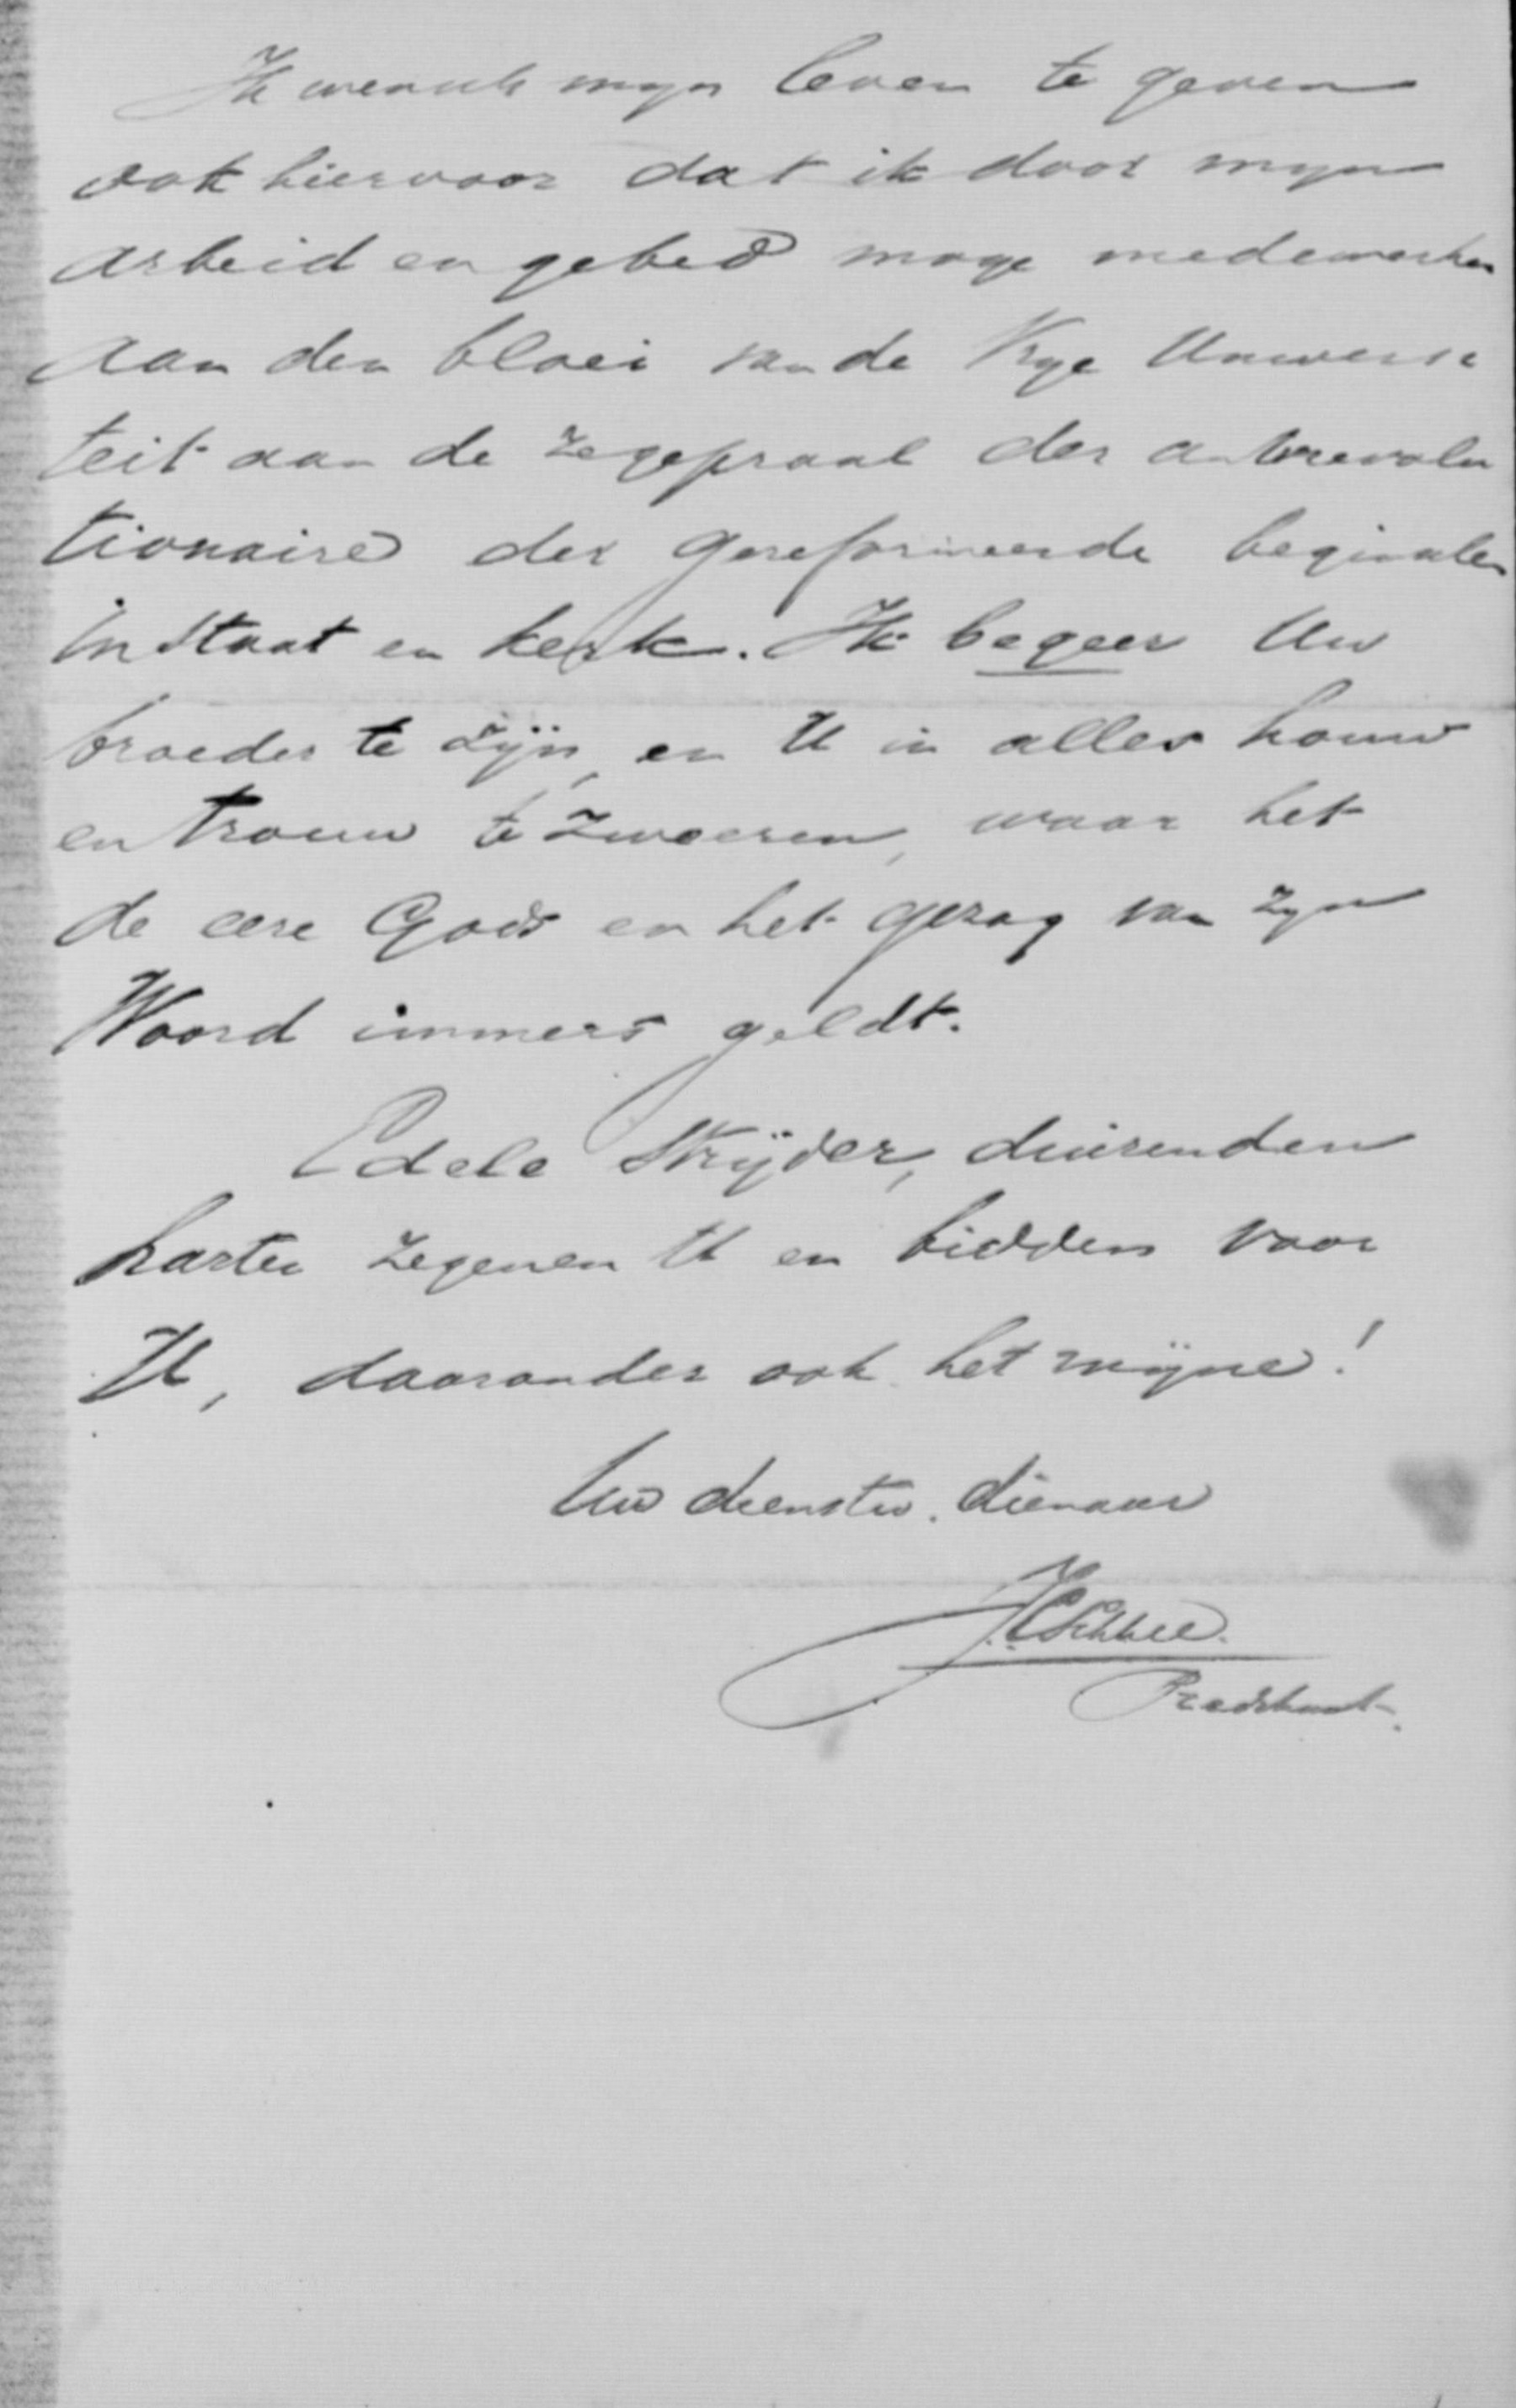 Ik wensch mijn leven te geven
ook hiervoor dat ik door mijn
arbeid en gebed moge medewerken
aan den bloei van de Vrije Universi
teit aan de zegepraal der antirevolu
tionaire der gereformeerde beginselen
in Staat en kerk. Ik begeer Uw
broeder te zijn, en U in alles houw
en trouw te zweeren, waar het
de eere Gods en het gezag van zijn
Woord immers geldt.
Edele Strijder, duizenden
harten zegenen U en bidden voor
U, daaronder ook het mijne!
Uw dienstw. dienaar
Predikant.